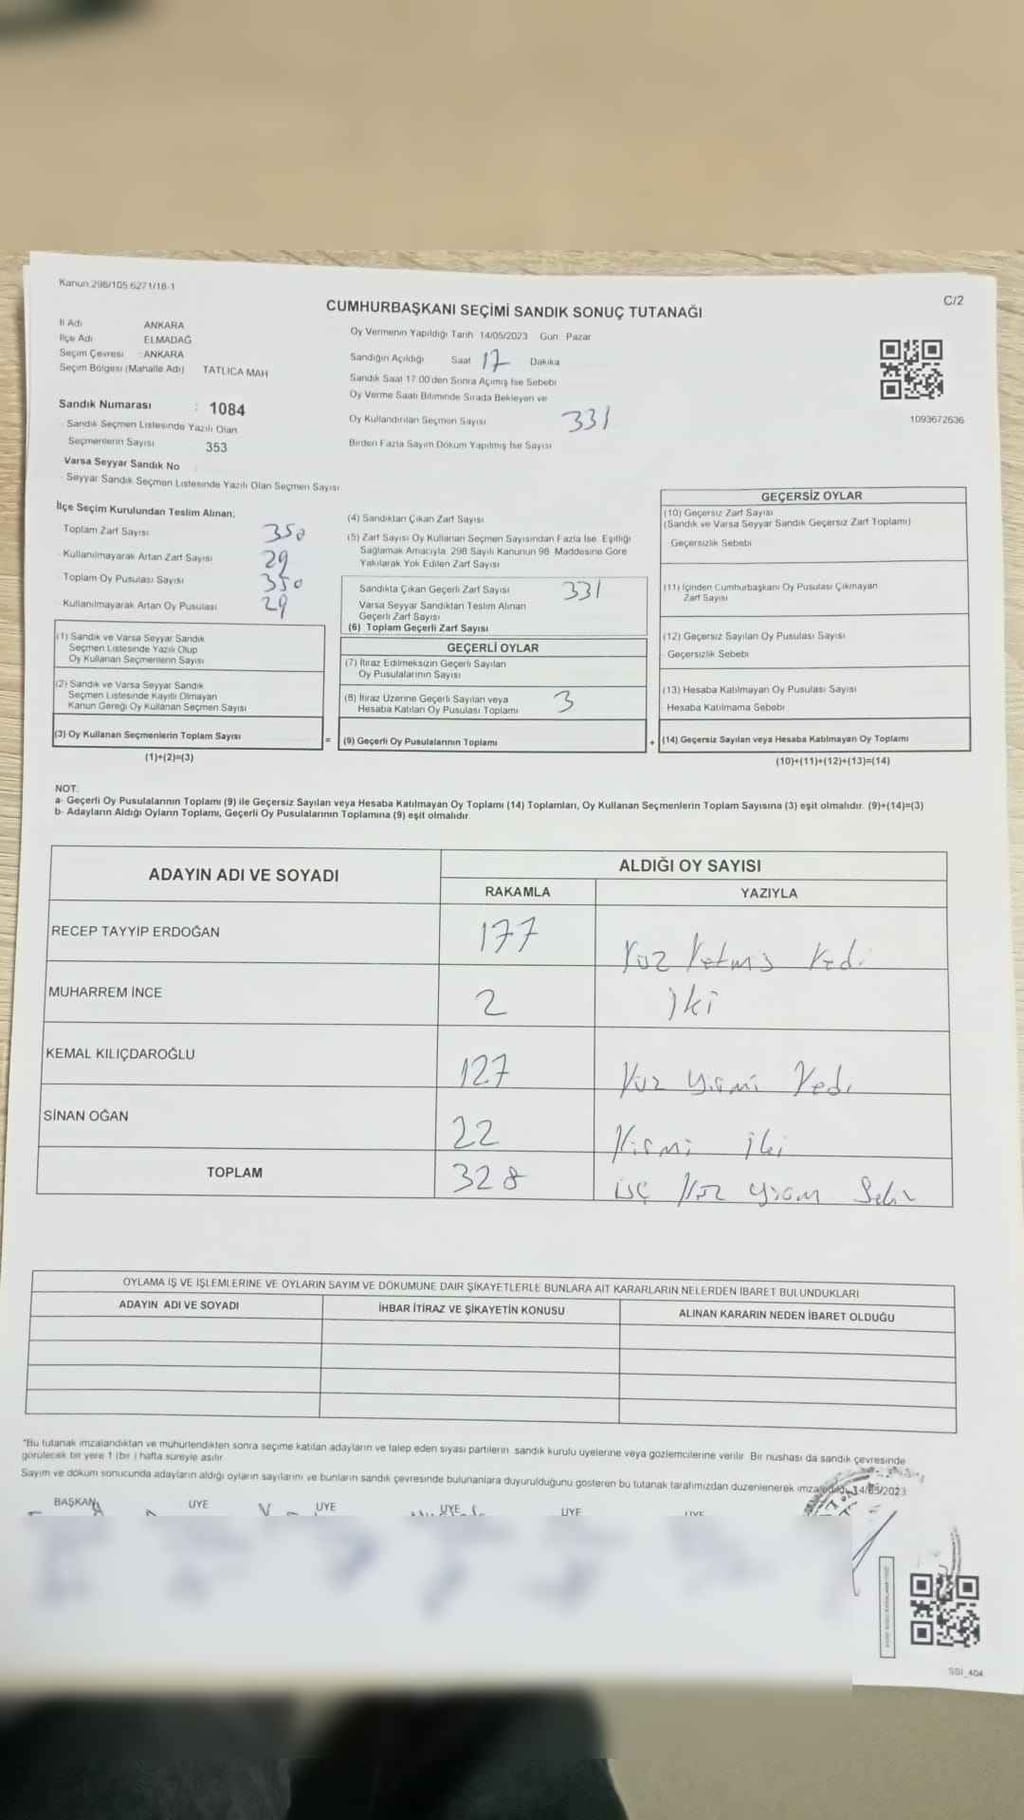 Kanun 298/105 6271/18-1
C/2
CUMHURBAŞKANI SEÇİMİ SANDIK SONUÇ TUTANAĞI
İl Adı ANKARA
İlçe Adı ELMADAĞ
Seçim Çevresi : ANKARA
Seçim Bölgesi (Mahalle Adı) TATLICA MAH
Sandık Numarası : 1084
Sandık Seçmen Listesinde Yazılı Olan
Seçmenlerin Sayısı 353
Varsa Seyyar Sandık No
Seyyar Sandık Seçmen Listesinde Yazılı Olan Seçmen Sayısı
Oy Vermenin Yapıldığı Tarih 14/05/2023 Gün Pazar
Sandığın Açıldığı Saat 17 Dakika
Sandık Saat 17 00'den Sonra Açımış İse Sebebi
Oy Verme Saati Bitiminde Sırada Bekleyen ve
Oy Kullandırılan Seçmen Sayısı 331
Birden Fazla Sayım Döküm Yapılmış İse Sayısı
1093672636
İlçe Seçim Kurulundan Teslim Alınan;
Toplam Zarf Sayısı 350
Kullanılmayarak Artan Zarf Sayısı 29
Toplam Oy Pusulası Sayısı 350
Kullanılmayarak Artan Oy Pusulası 29
(1) Sandık ve Varsa Seyyar Sandık
Seçmen Listesinde Yazılı Olup
Oy Kullanan Seçmenlerin Sayısı
(2) Sandık ve Varsa Seyyar Sandık
Seçmen Listesinde Kayıtlı Olmayan
Kanun Gereği Oy Kullanan Seçmen Sayısı
(3) Oy Kullanan Seçmenlerin Toplam Sayısı
(1)+(2)=(3)
(4) Sandıktan Çıkan Zarf Sayısı
(5) Zarf Sayısı Oy Kullanan Seçmen Sayısından Fazla İse Eşitliği
Sağlamak Amacıyla 298 Sayılı Kanunun 98 Maddesine Göre
Yakılarak Yok Edilen Zarf Sayısı
Sandıkta Çıkan Geçerli Zarf Sayısı 331
Varsa Seyyar Sandıktan Teslim Alınan
Geçerli Zarf Sayısı
(6) Toplam Geçerli Zarf Sayısı
GEÇERLİ OYLAR
(7) İtiraz Edilmeksizin Geçerli Sayılan
Oy Pusulalarının Sayısı
(8) İtiraz Üzerine Geçerli Sayılan veya
Hesaba Katılan Oy Pusulası Toplamı 3
= (9) Geçerli Oy Pusulalarının Toplamı
GEÇERSİZ OYLAR
(10) Geçersiz Zarf Sayısı
(Sandık ve Varsa Seyyar Sandık Geçersiz Zarf Toplamı)
Geçersizlik Sebebi
(11) İçinden Cumhurbaşkanı Oy Pusulası Çıkmayan
Zarf Sayısı
(12) Geçersiz Sayılan Oy Pusulası Sayısı
Geçersizlik Sebebi
(13) Hesaba Katılmayan Oy Pusulası Sayısı
Hesaba Katılmama Sebebi
+ (14) Geçersiz Sayılan veya Hesaba Katılmayan Oy Toplamı
(10)+(11)+(12)+(13)=(14)
NOT:
a- Geçerli Oy Pusulalarının Toplamı (9) ile Geçersiz Sayılan veya Hesaba Katılmayan Oy Toplamı (14) Toplamları, Oy Kullanan Seçmenlerin Toplam Sayısına (3) eşit olmalıdır. (9)+(14)=(3)
b- Adayların Aldığı Oyların Toplamı, Geçerli Oy Pusulalarının Toplamına (9) eşit olmalıdır
ADAYIN ADI VE SOYADI ALDIĞI OY SAYISI
RAKAMLA YAZIYLA
RECEP TAYYİP ERDOĞAN 177 Yüz Yetmiş Yedi
MUHARREM İNCE 2 iki
KEMAL KILIÇDAROĞLU 127 Yüz yirmi Yedi
SİNAN OĞAN 22 Yirmi iki
TOPLAM 328 üç Yüz yirmi Sekiz
OYLAMA İŞ VE İŞLEMLERİNE VE OYLARIN SAYIM VE DÖKÜMÜNE DAİR ŞİKAYETLERLE BUNLARA AİT KARARLARIN NELERDEN İBARET BULUNDUKLARI
ADAYIN ADI VE SOYADI İHBAR İTİRAZ VE ŞİKAYETİN KONUSU ALINAN KARARIN NEDEN İBARET OLDUĞU
"Bu tutanak imzalandıktan ve mühürlendikten sonra seçime katılan adayların ve talep eden siyasi partilerin sandık kurulu üyelerine veya gözlemcilerine verilir. Bir nüshası da sandık çevresinde
görülecek bir yere 1 (bir ) hafta süreyle asılır
Sayım ve döküm sonucunda adayların aldığı oyların sayılarını ve bunların sandık çevresinde bulunanlara duyurulduğunu gösteren bu tutanak tarafımızdan düzenlenerek imzalandı. 14/05/2023
BAŞKAN ÜYE ÜYE ÜYE ÜYE ÜYE
SSI_404